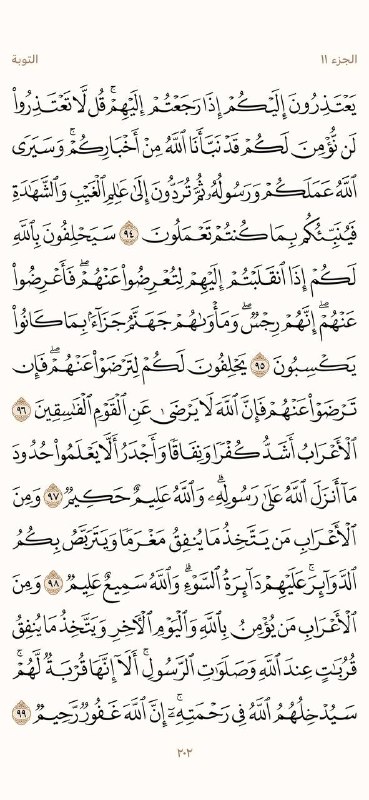 الجزء ١١
التوبة
يَعْتَذِرُونَ إِلَيْكُمْ إِذَا رَجَعْتُمْ إِلَيْهِمْ ۚ قُل لَّا تَعْتَذِرُوا۟
لَن نُّؤْمِنَ لَكُمْ قَدْ نَبَّأَنَا ٱللَّهُ مِنْ أَخْبَارِكُمْ ۚ وَسَيَرَى
ٱللَّهُ عَمَلَكُمْ وَرَسُولُهُۥ ثُمَّ تُرَدُّونَ إِلَىٰ عَٰلِمِ ٱلْغَيْبِ وَٱلشَّهَٰدَةِ
فَيُنَبِّئُكُم بِمَا كُنتُمْ تَعْمَلُونَ ٩٤ سَيَحْلِفُونَ بِٱللَّهِ
لَكُمْ إِذَا ٱنقَلَبْتُمْ إِلَيْهِمْ لِتُعْرِضُوا۟ عَنْهُمْ ۖ فَأَعْرِضُوا۟
عَنْهُمْ ۖ إِنَّهُمْ رِجْسٌ ۖ وَمَأْوَىٰهُمْ جَهَنَّمُ جَزَآءًۢ بِمَا كَانُوا۟
يَكْسِبُونَ ٩٥ يَحْلِفُونَ لَكُمْ لِتَرْضَوْا۟ عَنْهُمْ ۖ فَإِن
تَرْضَوْا۟ عَنْهُمْ فَإِنَّ ٱللَّهَ لَا يَرْضَىٰ عَنِ ٱلْقَوْمِ ٱلْفَٰسِقِينَ ٩٦
ٱلْأَعْرَابُ أَشَدُّ كُفْرًا وَنِفَاقًا وَأَجْدَرُ أَلَّا يَعْلَمُوا۟ حُدُودَ
مَآ أَنزَلَ ٱللَّهُ عَلَىٰ رَسُولِهِۦ ۗ وَٱللَّهُ عَلِيمٌ حَكِيمٌ ٩٧ وَمِنَ
ٱلْأَعْرَابِ مَن يَتَّخِذُ مَا يُنفِقُ مَغْرَمًا وَيَتَرَبَّصُ بِكُمُ
ٱلدَّوَآئِرَ ۚ عَلَيْهِمْ دَآئِرَةُ ٱلسَّوْءِ ۗ وَٱللَّهُ سَمِيعٌ عَلِيمٌ ٩٨ وَمِنَ
ٱلْأَعْرَابِ مَن يُؤْمِنُ بِٱللَّهِ وَٱلْيَوْمِ ٱلْءَاخِرِ وَيَتَّخِذُ مَا يُنفِقُ
قُرُبَٰتٍ عِندَ ٱللَّهِ وَصَلَوَٰتِ ٱلرَّسُولِ ۚ أَلَآ إِنَّهَا قُرْبَةٌ لَّهُمْ ۚ
سَيُدْخِلُهُمُ ٱللَّهُ فِى رَحْمَتِهِۦٓ ۗ إِنَّ ٱللَّهَ غَفُورٌ رَّحِيمٌ ٩٩
٢٠٢